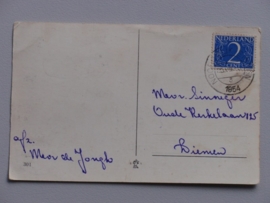 NEDERLAND
2
CENT
1954
Mevr. Sinneger
Oude Kerkelaan 125
Diemen
afz.
Mevr de Jongh